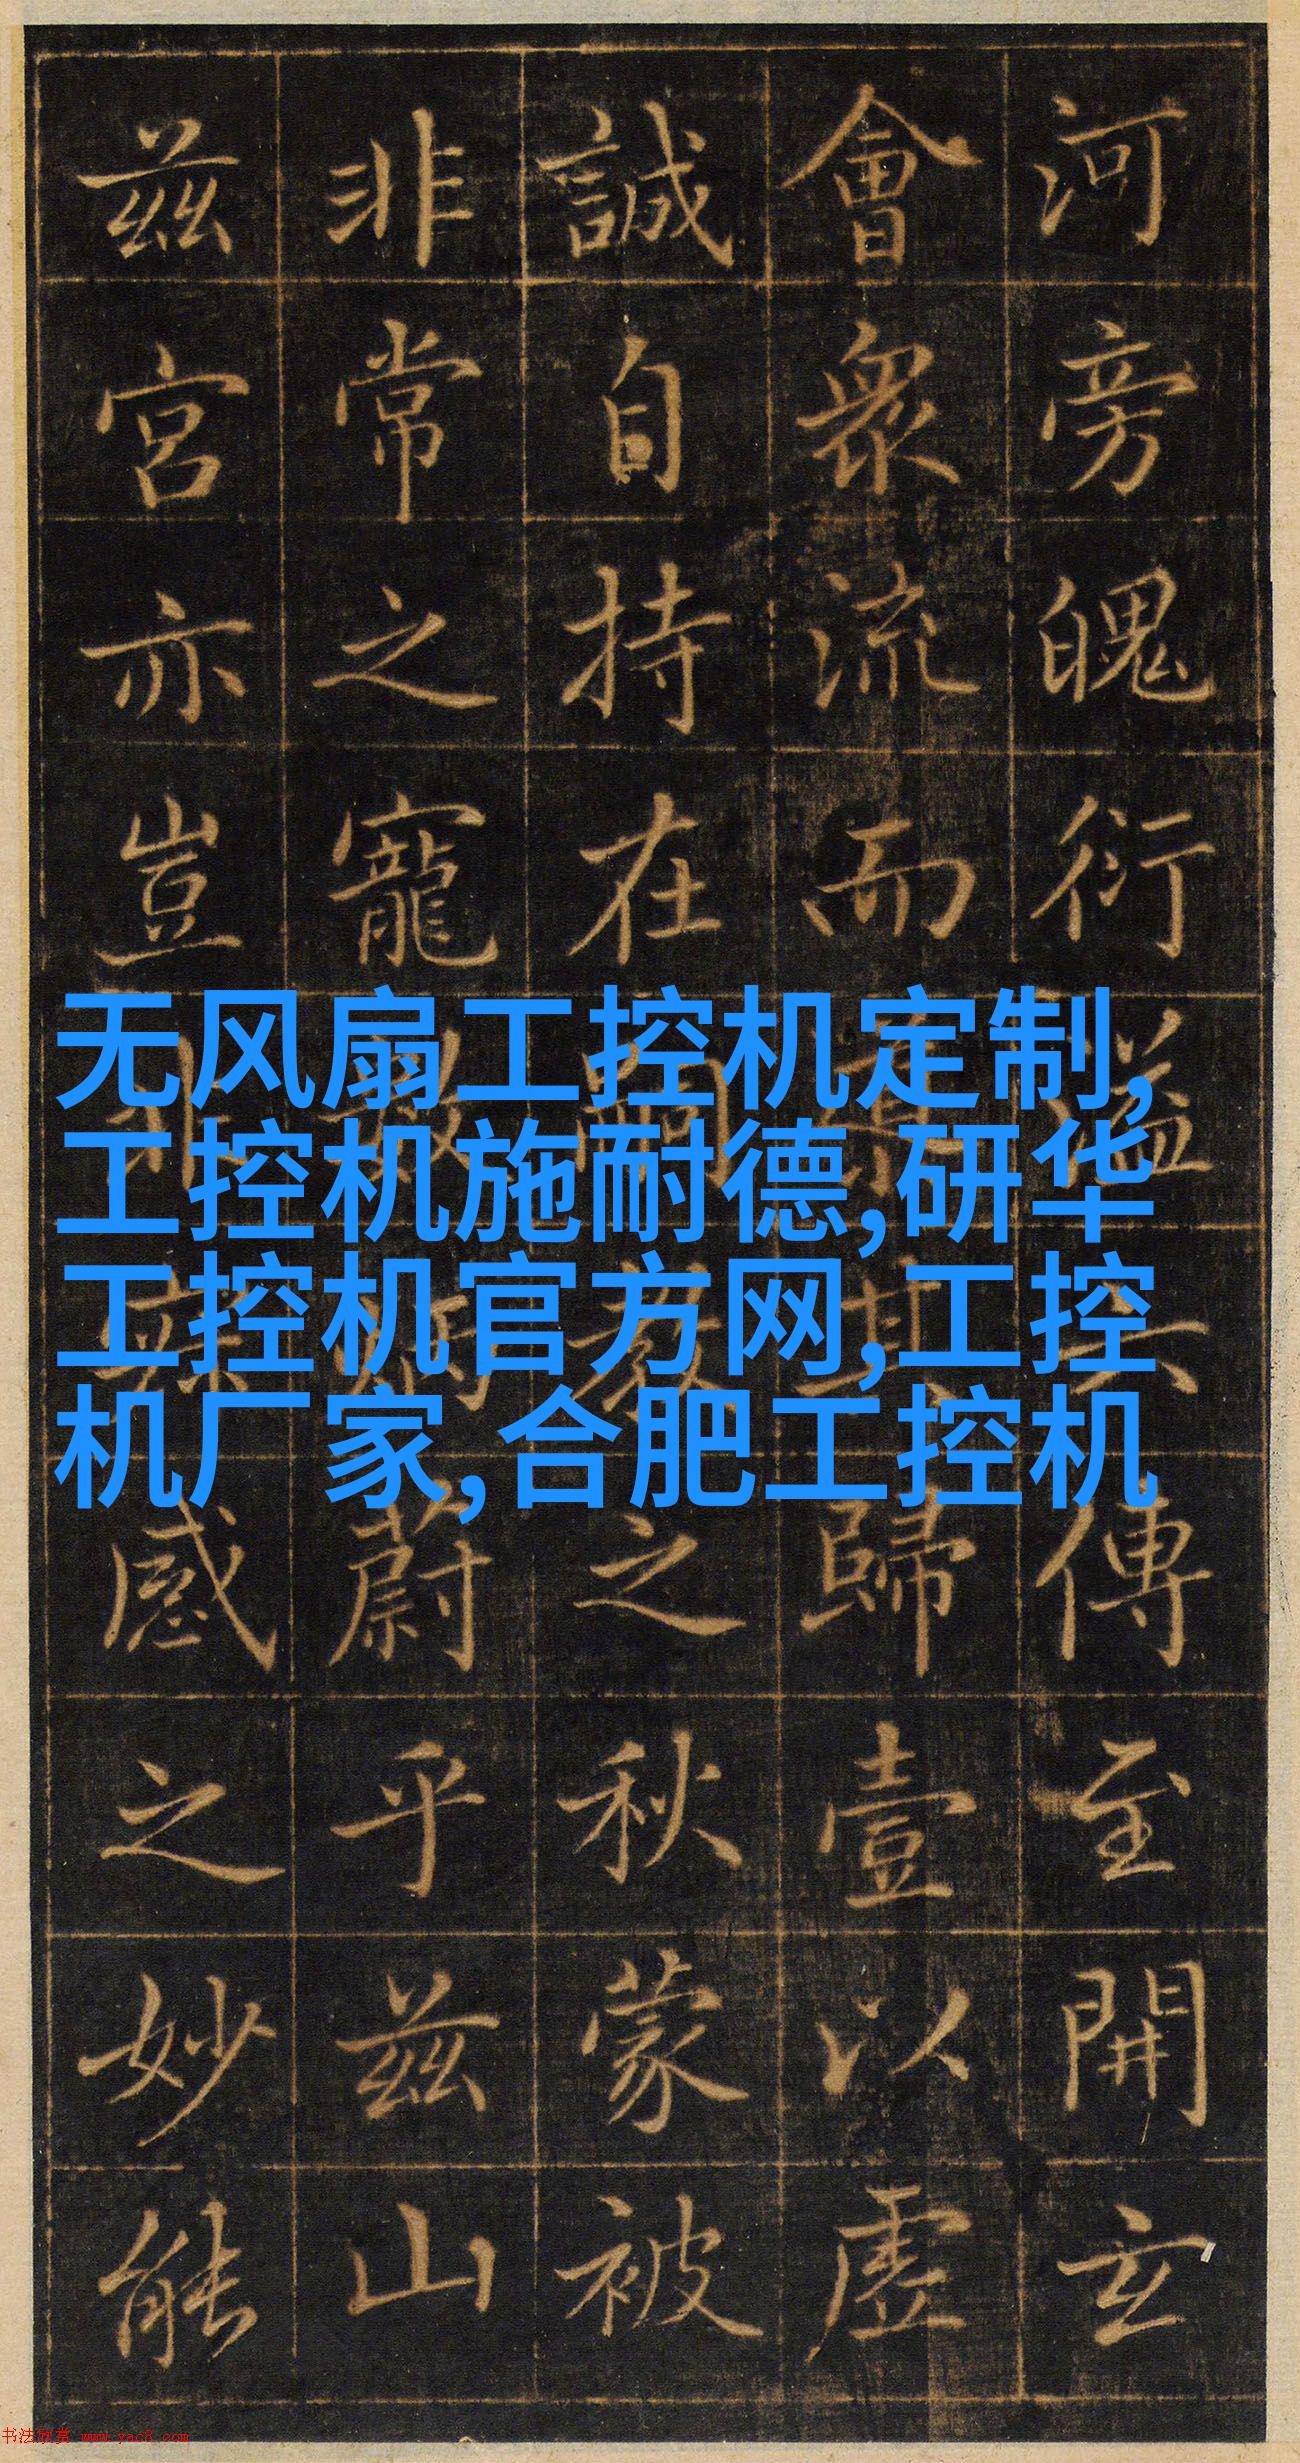 河旁魄衍溢傳至開玄
會衆流而其歸壹以虛
誠自持在嗣教之秋蒙被
非常之寵敢蔚乎兹山
兹宮亦豈非無感之妙能
无风扇工控机定制,
工控机施耐德,研华
工控机官方网,工控
机厂家,合肥工控机
书法欣赏 www.yac8.com